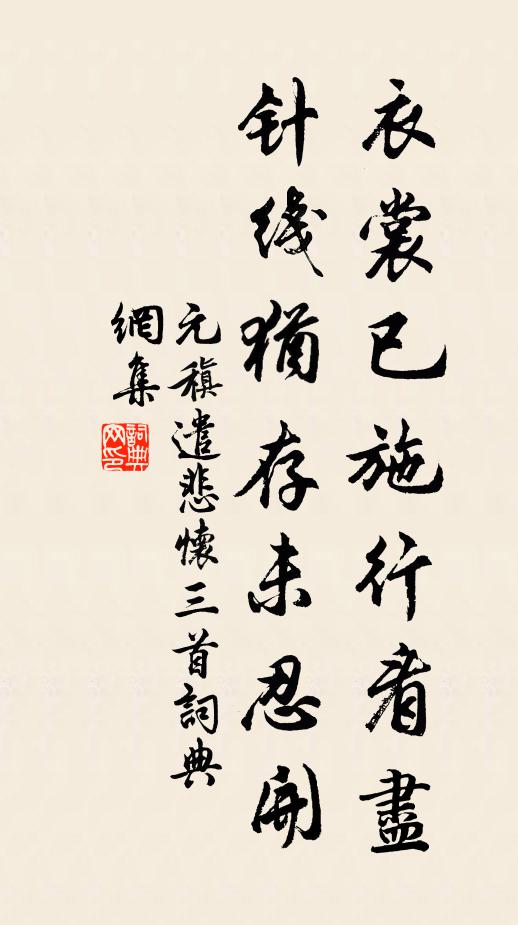 衣裳已施行看盡
针线猶存未忍開
元稹遣悲懷三首詞典
網集
詞典
网印